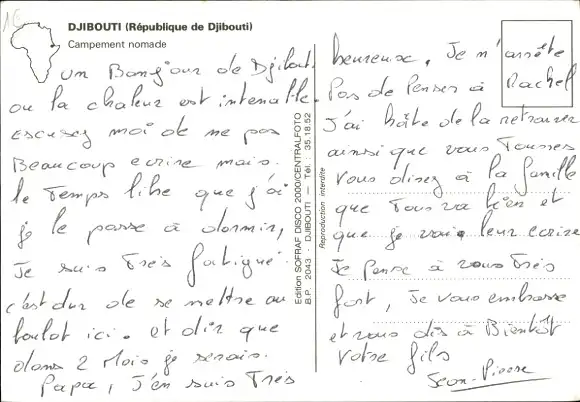 1€
DJIBOUTI (République de Djibouti)
Campement nomade
un Bonjour de Djibouti
ou la chaleur est intenable.
Escusez moi de ne pas
Beaucoup ecrire mais.
le temps libre que j'ai
je le passe à dormir,
Je suis très fatigué.
c'est dur de se mettre au
boulot ici. et dir que
dans 2 mois je serais.
Papa, J'en suis très
Edition SOFRAF DISCO 2000/CENTRALFOTO
B.P. 2043 - DJIBOUTI — Tél : 35.18.52
Reproduction interdite
heureuse. Je m'arrête
Pas de Penser à Rachel
J'ai hâte de la retrouver
ainsi que vous Tousses
Vous direz à la famille
que tous va bien et
que je vais leur ecrire
Je Pense à vous très
fort, Je vous embrasse
et vous dis à Bientôt
Votre fils
Jean-Pierre